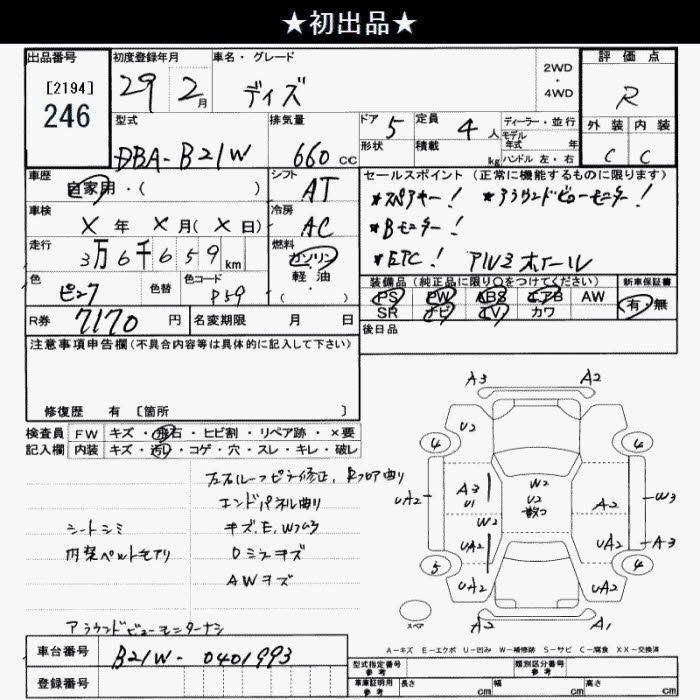 ★初出品★
出品番号 初度登録年月 車名・グレード 2WD・4WD 評価点
[2194] 29年 2月 デイズ R
246
型式 排気量 ドア 5 定員 4人 ディーラー・並行 外装 内装
DBA-B21W 660cc 形状 積載 kg モデル年式 年 ハンドル 左・右 C C
車歴 シフト セールスポイント(正常に機能するものに限ります)
自家用・( ) AT ★スペアキー! ★アラウンドビューモニター!
車検 冷房 ★Bモニター!
X年 X月(X日) AC ★ETC! アルミホイール
走行 燃料
3万6千659km ガソリン・軽油・( )
色 色替 色コード 装備品(純正品に限り○をつけてください) 新車保証書
ピンク P59 PS PW ABS エアB AW 有・無
SR ナビ TV カワ
R券 7170円 名変期限 月 日 後日品
注意事項申告欄(不具合内容等は具体的に記入して下さい)
修復歴 有 [箇所 ]
検査員 FW キズ・飛石・ヒビ割・リペア跡・×要
記入欄 内装 キズ・汚れ・コゲ・穴・スレ・キレ・破レ
左右ルーフピラ修正、Rフロア曲り
エンドパネル曲り
シートシミ キズ、E、Wアリ
内装ペットモアリ Dミラキズ
AWキズ
アラウンドビューモニターナシ
A3 A2
4 U2 4
UA2 A3 U1 W2 U2 数コ A2 W3
W2
UA2 UA2 A3
5 UA2 UA2 4
スペア A2 A1
A-キズ E-エクボ U-凹み W-補修跡 S-サビ C-腐食 XX-交換済
車台番号 B21W-0401993 型式指定番号 参考 類別区分番号 参考
登録番号 車庫証明用 参考 長さ cm 幅 cm 高さ cm